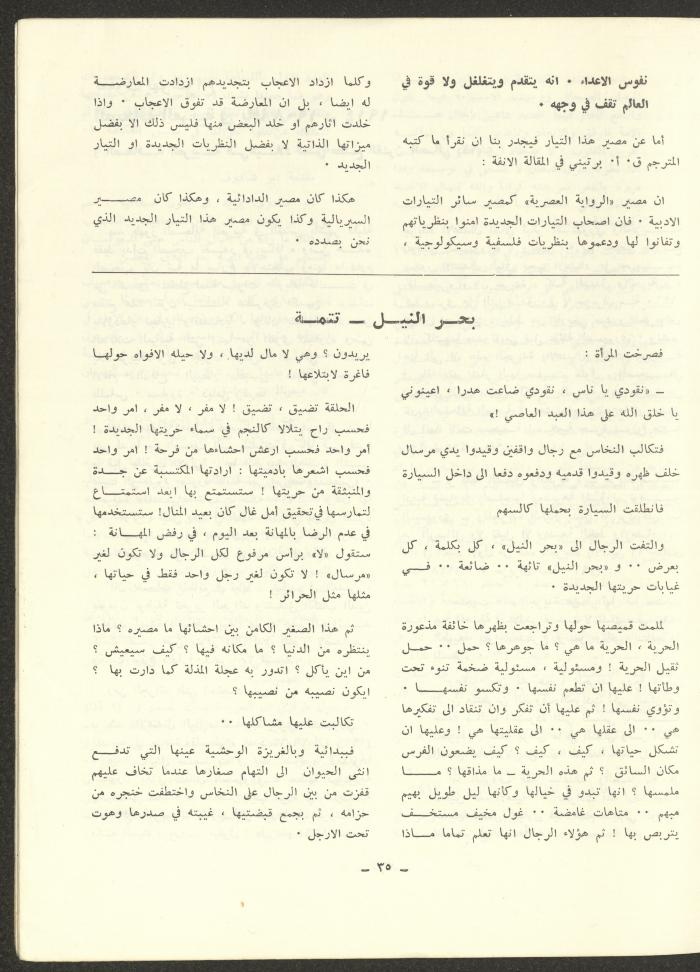 نفوس الاعداء ٠ انه يتقدم ويتغلغل ولا قوة في
العالم تقف في وجهه ٠
أما عن مصير هذا التيار فيجدر بنا ان نقرأ ما كتبه
المترجم ق٠ أ٠ برتيني في المقالة الانفة :
ان مصير «الرواية العصرية» كمصير سائر التيارات
الادبية ٠ فان اصحاب التيارات الجديدة امنوا بنظرياتهم
وتفانوا لها ودعموها بنظريات فلسفية وسيكولوجية ،
وكلما ازداد الاعجاب بتجديدهم ازدادت المعارضة
له ايضا ، بل ان المعارضة قد تفوق الاعجاب ٠ واذا
خلدت اثارهم او خلد البعض منها فليس ذلك الا بفضل
ميزاتها الذاتية لا بفضل النظريات الجديدة او التيار
الجديد ٠
هكذا كان مصير الدادائية ، وهكذا كان مصير
السيريالية وكذا يكون مصير هذا التيار الجديد الذي
نحن بصدده ٠
بحر النيل ــ تتمة
فصرخت المرأة :
ــ «نقودي يا ناس ، نقودي ضاعت هدرا ، اعينوني
يا خلق الله على هذا العبد العاصي !»
فتكالب النخاس مع رجال واقفين وقيدوا يدي مرسال
خلف ظهره وقيدوا قدميه ودفعوه دفعا الى داخل السيارة
فانطلقت السيارة بحملها كالسهم
والتفت الرجال الى «بحر النيل» ، كل بكلمة ، كل
بعرض ٠٠ و «بحر النيل» تائهة ٠٠ ضائعة ٠٠ في
غيابات حريتها الجديدة ٠
لملمت قميصها حولها وتراجعت بظهرها خائفة مذعورة
الحرية ، الحرية ما هي ؟ ما جوهرها ؟ حمل ٠٠ حمل
ثقيل الحرية ! ومسئولية ، مسئولية ضخمة تنوء تحت
وطاتها ! عليها ان تطعم نفسها ٠ وتكسو نفسها ٠
وتؤوي نفسها ! ثم عليها أن تفكر وان تنقاد الى تفكيرها
هي ٠٠ الى عقلها هي ٠٠ الى عقليتها هي ! وعليها ان
تشكل حياتها ، كيف ، كيف ؟ كيف يضعون الفرس
مكان السائق ؟ ثم هذه الحرية ــ ما مذاقها ؟ ما
ملمسها ؟ انها تبدو في خيالها وكأنها ليل طويل بهيم
مبهم ٠٠ متاهات غامضة ٠٠ غول مخيف مستخف
يتربص بها ! ثم هؤلاء الرجال انها تعلم تماما ماذا
يريدون ؟ وهي لا مال لديها ، ولا حيله الافواه حولها
فاغرة لابتلاعها !
الحلقة تضيق ، تضيق ! لا مفر ، لا مفر ، امر واحد
فحسب راح يتلالا كالنجم في سماء حريتها الجديدة !
أمر واحد فحسب ارعش احشاءها من فرحة ! امر واحد
فحسب اشعرها بآدميتها : ارادتها المكتسبة عن جدة
والمنبثقة من حريتها ! ستستمتع بها ابعد استمتاع
لتمارسها في تحقيق أمل غال كان بعيد المنال! ستستخدمها
في عدم الرضا بالمهانة بعد اليوم ، في رفض المهانة :
ستقول «لا» برأس مرفوع لكل الرجال ولا تكون لغير
«مرسال» ! لا تكون لغير رجل واحد فقط في حياتها ،
مثلها مثل الحرائر !
ثم هذا الصغير الكامن بين احشائها ما مصيره ؟ ماذا
ينتظره من الدنيا ؟ ما مكانه فيها ؟ كيف سيعيش ؟
من اين ياكل ؟ اتدور به عجلة المذلة كما دارت بها ؟
ايكون نصيبه من نصيبها ؟
تكالبت عليها مشاكلها ٠٠
فببدائية وبالغريزة الوحشية عينها التي تدفع
انثى الحيوان الى التهام صغارها عندما تخاف عليهم
قفزت من بين الرجال على النخاس واختطفت خنجره من
حزامه ، ثم بجمع قبضتيها ، غيبته في صدرها وهوت
تحت الارجل ٠
ــ ٣٥ ــ